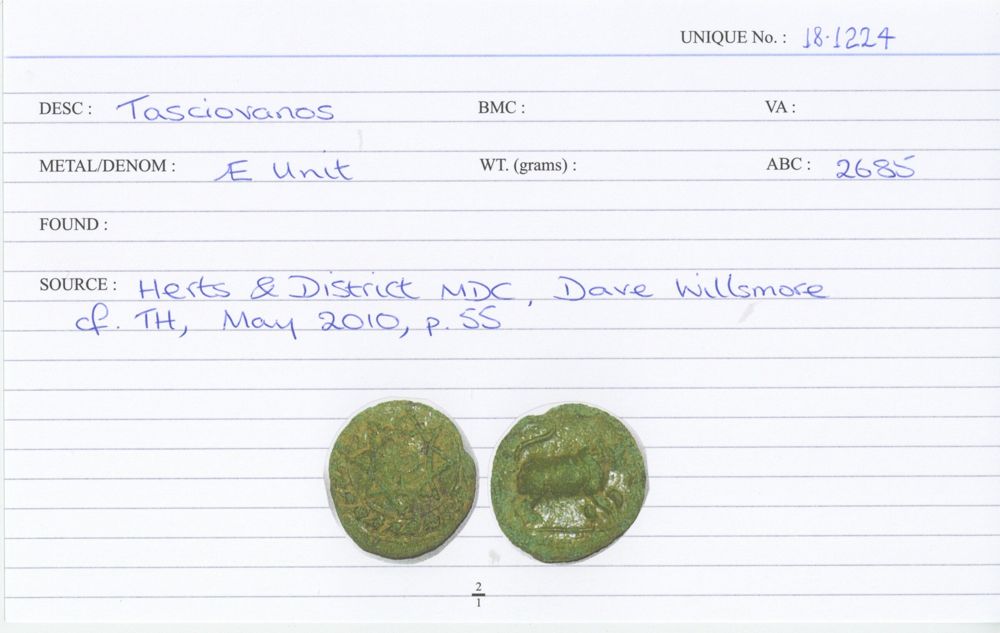 UNIQUE No. : 18·1224
DESC : Tasciovanos BMC : VA :
METAL/DENOM : Æ Unit WT. (grams) : ABC : 2685
FOUND :
SOURCE : Herts & District MDC, Dave Willsmore
cf. TH, May 2010, p. 55
2
1